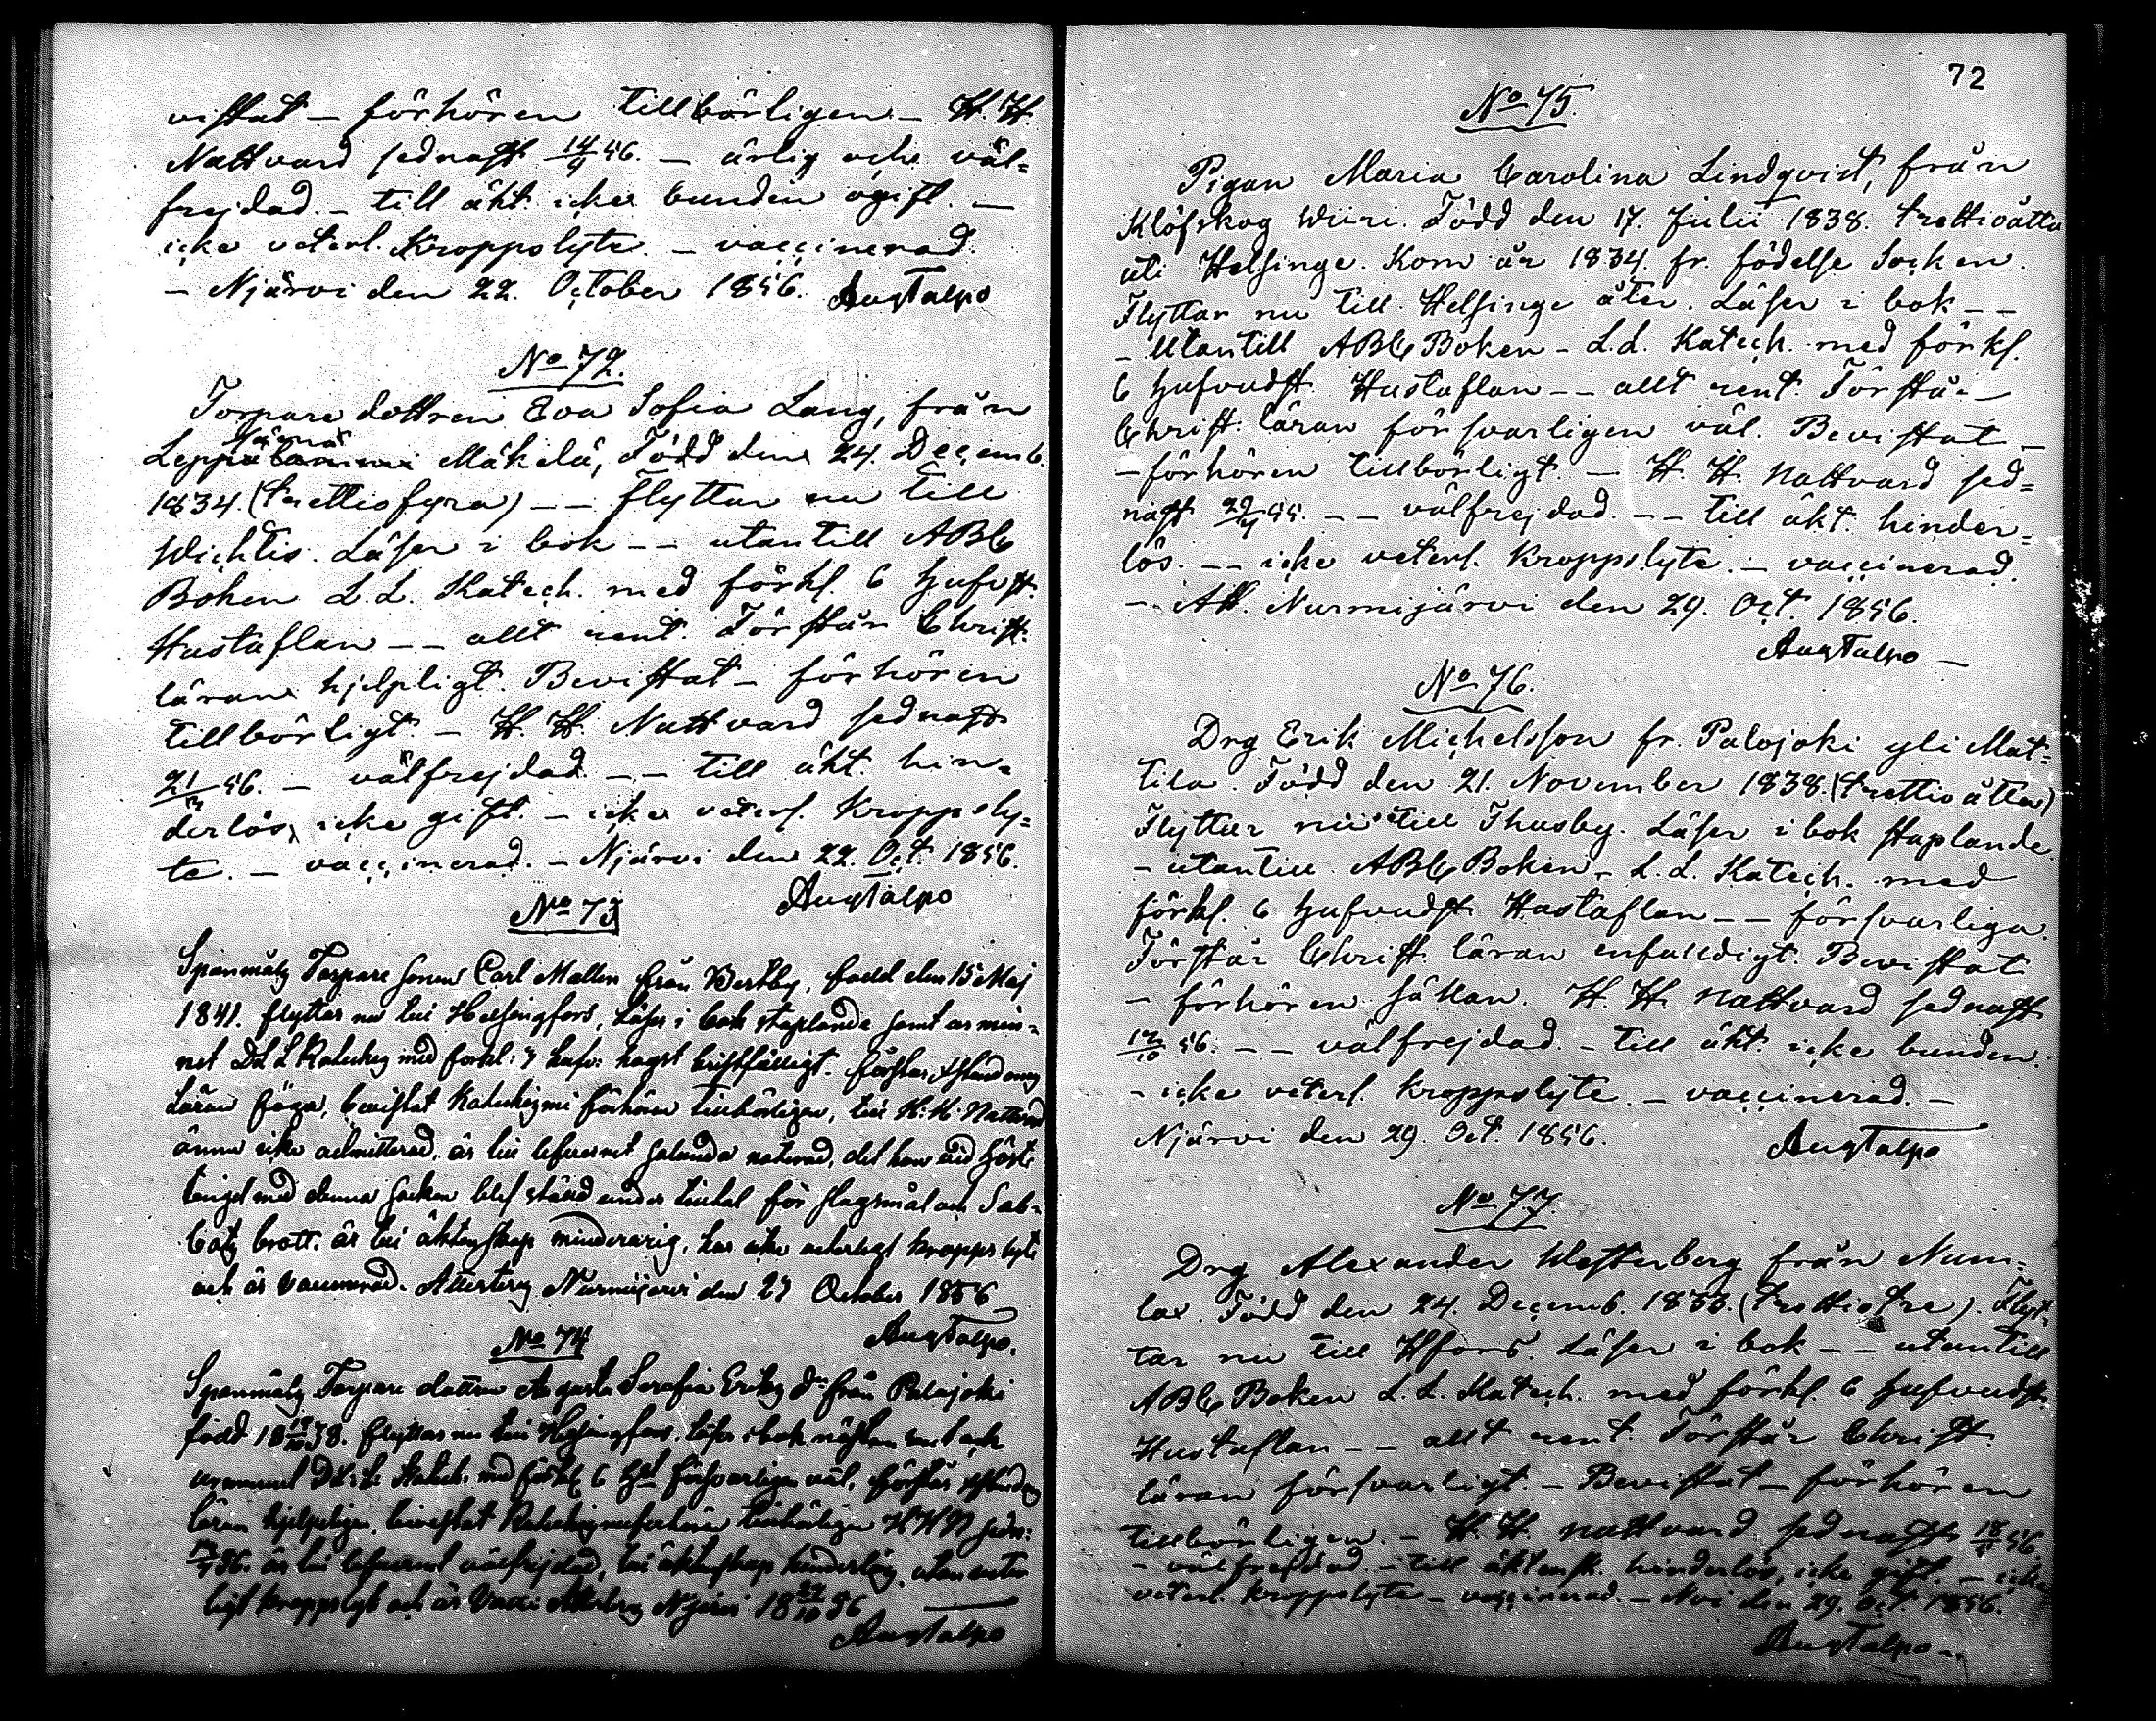 vistat – förhören tillbörligen – H. H.
Nattvard sednast 14/9 56. – ärlig och väl=
frejdad. – till äkt. icke bunden ogift. –
icke veterl. Kroppslyte. – vaccinerad.
– Njärvi den 22. October 1856. AugTalpo
No 72.
Torpare dottren Eva Sofia Lang, från
Mäkelä, Född den 24. Decemb.
1834. (trettiofyra) – – flyttar nu till
Wichtis. Läser i bok – – utantill ABC
Boken L. L. Katech. med förkl. 6 Hufvst.
Hustaflan – – allt rent. Förstår Christ.
läran hjelpligt. Bevistat – förhören
tillbörligt. – H. H. Nattvard sednast
21/ 56. – välfrejdad. – – till äkt. hin=
derlös, icke gift. – icke veterl. Kroppsly=
te. – vaccinerad. – Njärvi den 22. Oct. 1856.
AugTalpo
No 73
Spanmåls Torpare sonen Carl Mallen från Bertby, född den 15 Maj
1841. flyttar nu till Helsingfors, Läser i bok staplande samt ur min=
net D L L Kateches med förkl: 7 hufv: något bristfälligt. förstår
Läran föga, bevistat Katechismi förhören tillbörligen, till H. H. Nattvard
ännu icke admitterad, är till lefvernet sålunda noterad, det han vid Höste
tinget med denna Socken blef ställd under tilltal för slagsmål och Sab=
bats brott. är till äktenskap minderårig, har icke veterligt kropps lyte
och är Vaccinerad. Attesteras Nurmijärvi den 27 October 1856
AugTalpo.
No 74
Spanmåls Torpare dottren Augusta Serafia Eriks dr från Palojoki
född 18 /10 38. flyttar nu till Helsingfors. läser i bok nästan rent och
ur minnet D L. L. Katech. med förkl. 6 Hst försvarligen väl, förstår
läran hjelpligen, bevistat Katechismiförhören tillbörligen H H N sedn:
56. är till lefvernet välfrejdad, till äktenskap hinderlös, utan veter
ligt kroppslyte och är Vacci Attesteras Njärvi 18 27/10 56
AugTalpo
72
No 75.
Pigan Maria Carolina Lindqvist, från
Klöfskog Wiiri. Född den 17. Julii 1838. trettioåtta
uti Helsinge. Kom år 1834 fr. födelse Socken
Flyttar nu till Helsinge åter. Läser i bok – –
– utantill ABC Boken – L. L. Katech. med förkl.
6 Hufvudst. Hustaflan – – allt rent. Förstår –
Christ. läran försvarligen väl. Bevistat –
– förhören tillbörligt. – H. H. Nattvard sed=
nast 29/4 55. – – välfrejdad. – – till äkt. hinder=
lös. – – icke veterl. Kroppslyte. – vaccinerad.
– Att. Nurmijärvi den 29. Oct. 1856.
AugTalpo –
No 76.
Drg Erik Michelsson fr. Palojoki yli Mat=
tila. Född den 21. November 1838. (trettioåtta)
Flyttar nu till Thusby. Läser i bok staplande.
– utantill ABC Boken – L. L. Katech. med
förkl. 6 Hufvudst. Hustaflan – – försvarliga.
Förstår Christ. läran enfaldigt. Bevistat
– förhören sällan. H. H. Nattvard sednast
12/10 56. – – välfrejdad. – till äkt. icke bunden.
– icke veterl. Kroppslyte. – vaccinerad. –
Njärvi den 29. Oct. 1856.
AugTalpo
No 77
Drg Alexander Westerberg från Num=
lax. Född den 24. Decemb. 1833. (trettiotre). Flyt=
tar nu till Hfors. Läser i bok – – utantill
ABC Boken L. L. Katech. med förkl. 6 Hufvudst.
Hustaflan – – allt rent. Förstår Christ.
läran försvarligt. – Bevistat – förhören
tillbörligen. – H. H. Nattvard sednast 18/ 56.
– välfrejdad. – till äktensk. hinderlös, icke gift. – icke
veterl. kroppslyte – vaccinerad. – Nvi den 29. Oct. 1856.
AugTalpo –